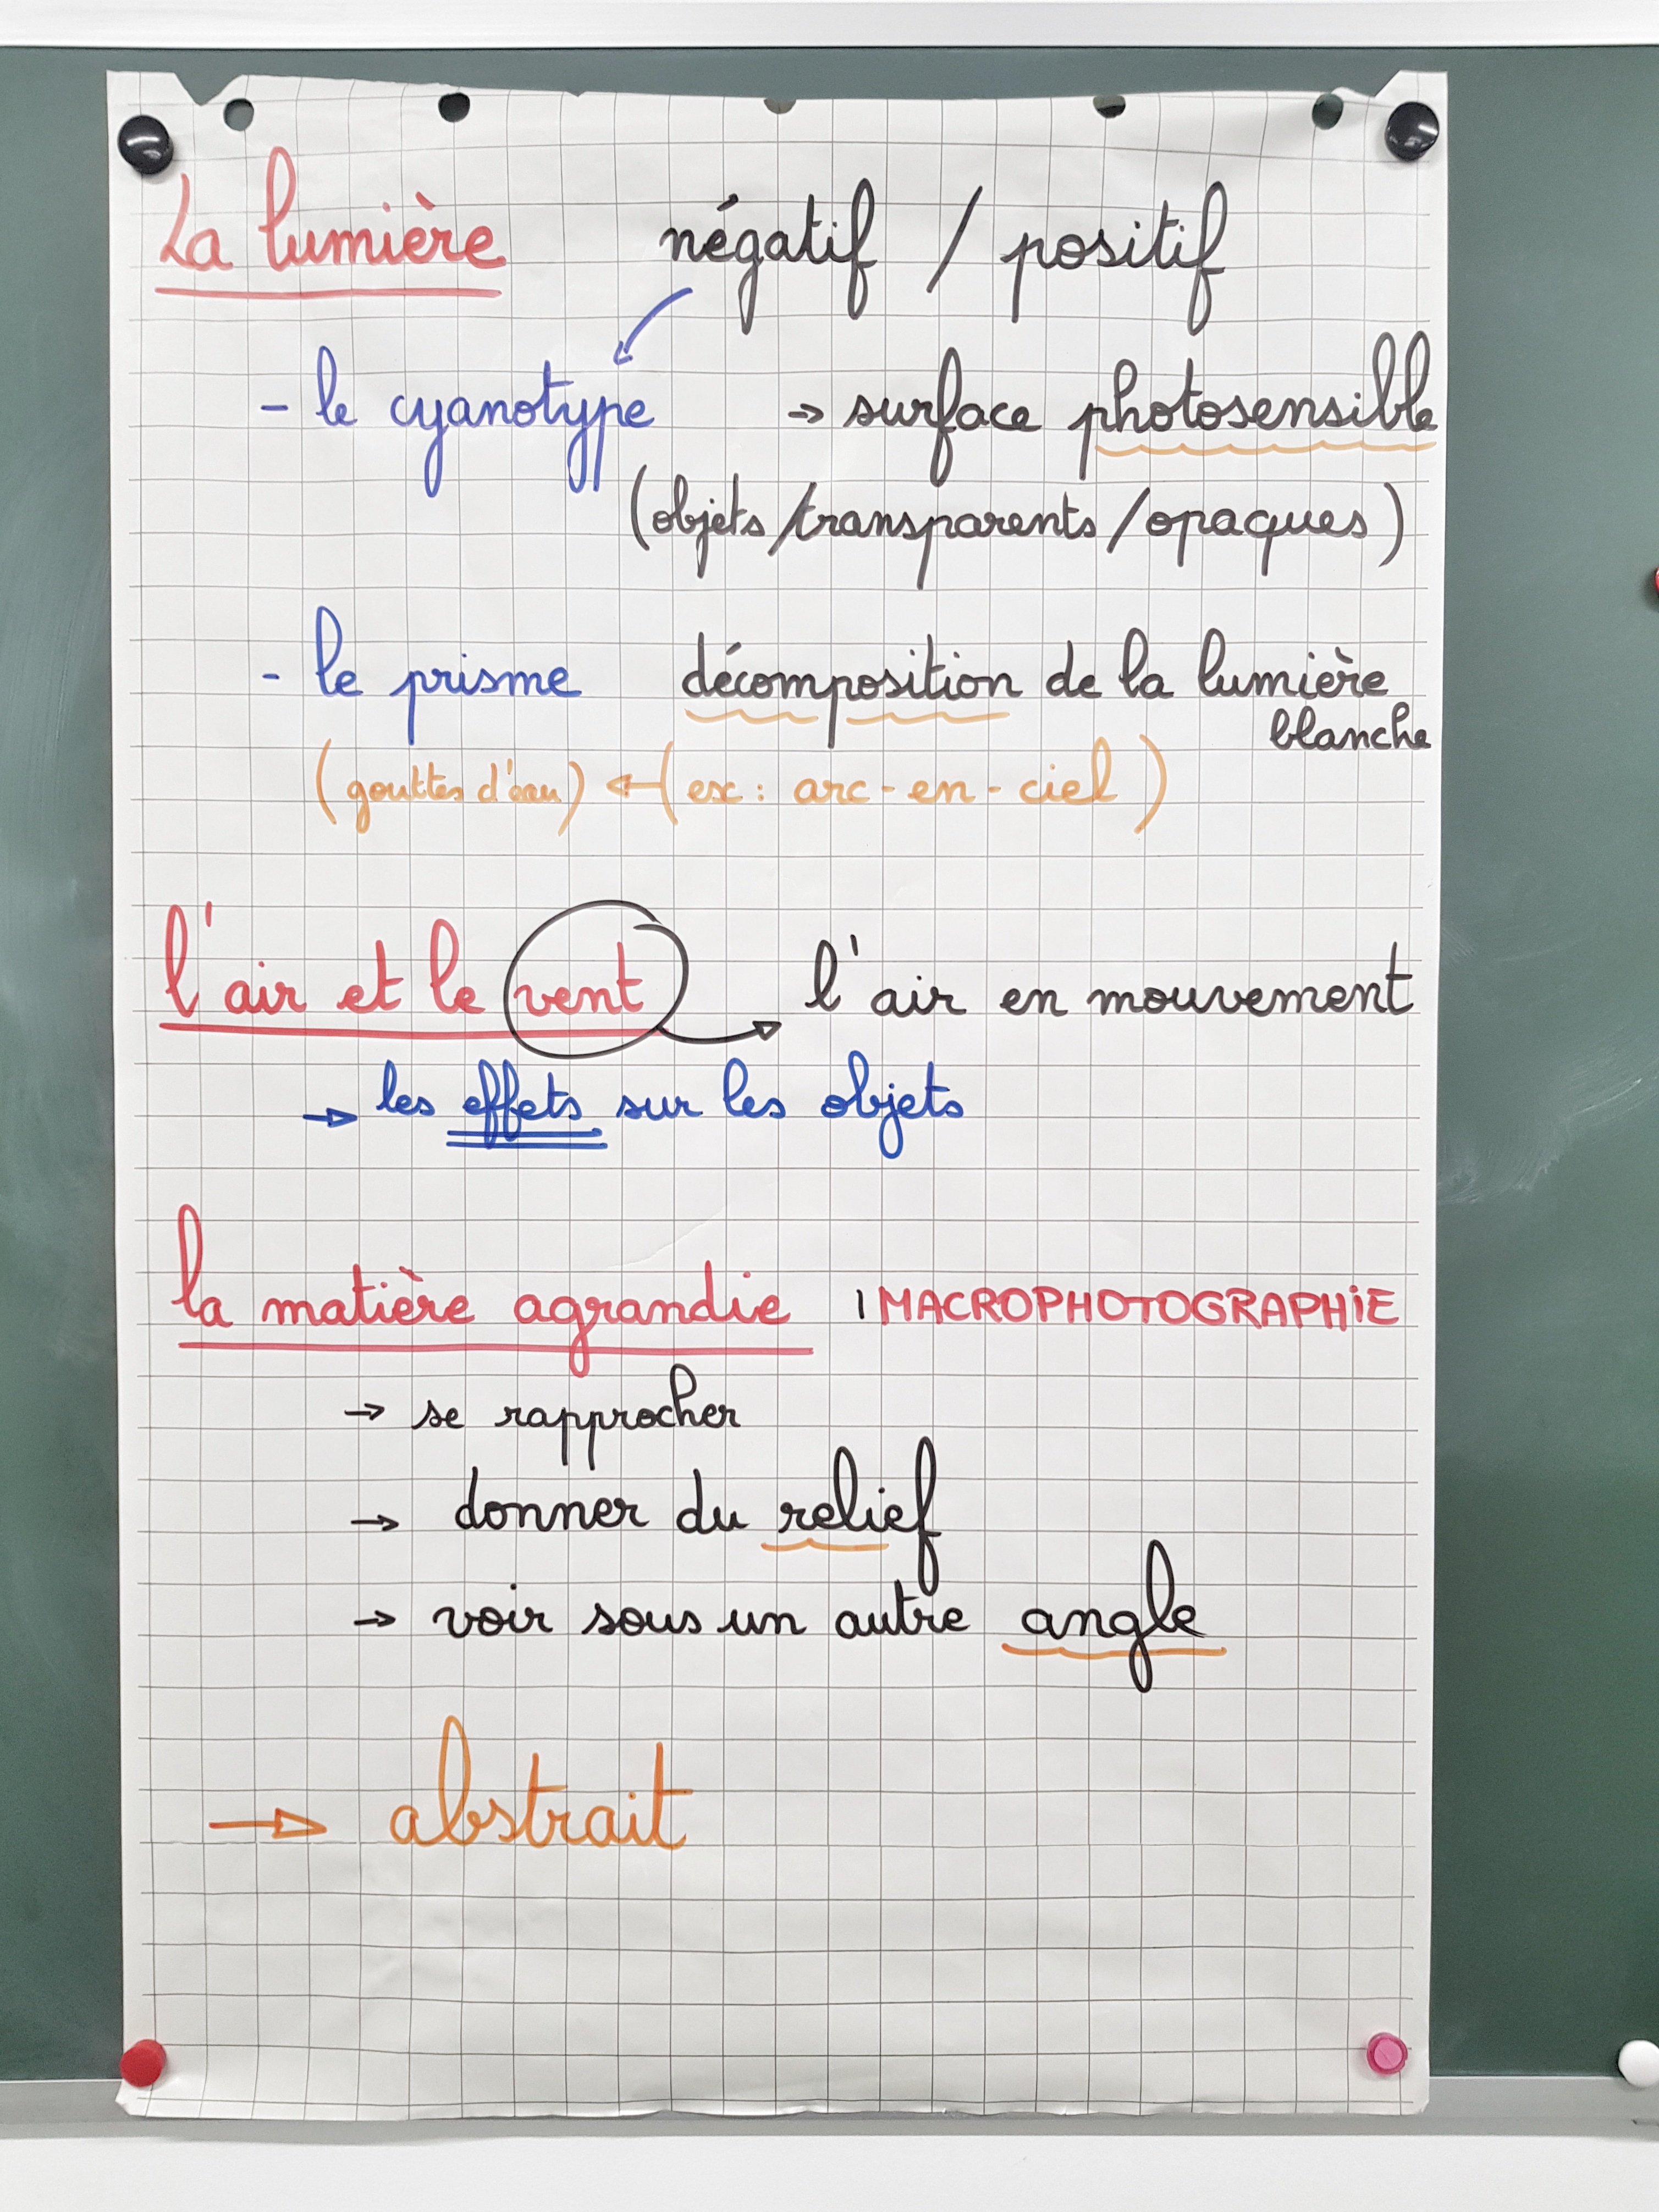 La lumière négatif / positif
- le cyanotype → surface photosensible
(objets/transparents/opaques)
- le prisme décomposition de la lumière
blanche
(gouttes d'eau) ← (ex: arc-en-ciel)
l'air et le vent → l'air en mouvement
→ les effets sur les objets
la matière agrandie | MACROPHOTOGRAPHiE
→ se rapprocher
→ donner du relief
→ voir sous un autre angle
→ abstrait